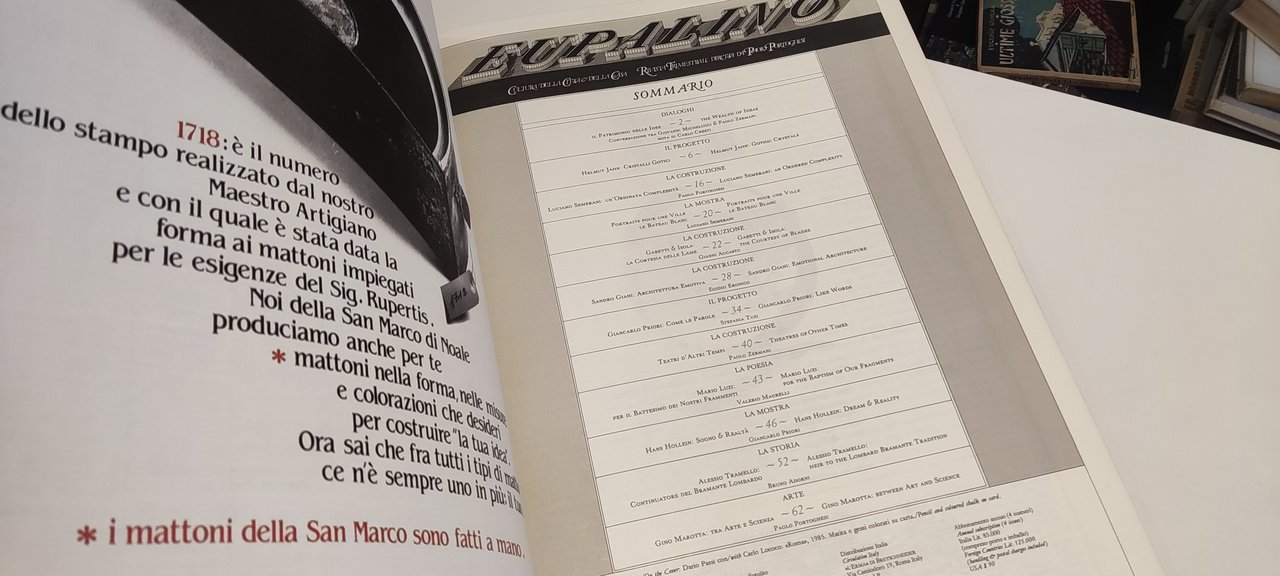 1718: è il numero
dello stampo realizzato dal nostro
Maestro Artigiano
e con il quale è stata data la
forma ai mattoni impiegati
per le esigenze del Sig. Rupertis.
Noi della San Marco di Noale
produciamo anche per te
* mattoni nella forma, nelle misure
e colorazioni che desideri
per costruire "la tua idea".
Ora sai che fra tutti i tipi di
ce n'è sempre uno in più: il
* i mattoni della San Marco sono fatti a mano.
1718
EUPALINO
Cultura della Città e della Casa Rivista Trimestrale diretta da Paolo Portoghesi
SOMMARIO
DIALOGHI
Il Patrimonio delle Idee ~2~ The Wealth of Ideas
Conversazione tra Giovanni Michelucci & Paolo Zermani
nota di Carlo Cresti
IL PROGETTO
Helmut Jahn: Cristalli Gotici ~6~ Helmut Jahn: Gothic Crystals
LA COSTRUZIONE
Luciano Semerani: un'Ordinata Complessità ~16~ Luciano Semerani: an Ordered Complexity
Paolo Portoghesi
LA MOSTRA
Portraits pour une Ville ~20~ Portraits pour une Ville
le Bateau Blanc le Bateau Blanc
Luciano Semerani
LA COSTRUZIONE
Gabetti & Isola: ~22~ Gabetti & Isola:
la Cortesia delle Lame the Courtesy of Blades
Gianni Accasto
LA COSTRUZIONE
Sandro Giani: Architettura Emotiva ~28~ Sandro Giani: Emotional Architecture
Egidio Eronico
IL PROGETTO
Giancarlo Priori: Come le Parole ~34~ Giancarlo Priori: Like Words
Stefania Tuzi
LA COSTRUZIONE
Teatri d'Altri Tempi ~40~ Theatres of Other Times
Paolo Zermani
LA POESIA
Mario Luzi: ~43~ Mario Luzi:
per il Battesimo dei Nostri Frammenti for the Baptism of Our Fragments
Valerio Magrelli
LA MOSTRA
Hans Hollein: Sogno & Realtà ~46~ Hans Hollein: Dream & Reality
Giancarlo Priori
LA STORIA
Alessio Tramello: ~52~ Alessio Tramello:
Continuatore del Bramante Lombardo heir to the Lombard Bramante Tradition
Bruno Adorni
ARTE
Gino Marotta: tra Arte e Scienza ~62~ Gino Marotta: between Art and Science
Paolo Portoghesi
On the Cover: Dario Passi con/with Carlo Lococo: «Roma», 1985. Matita e gessi colorati su carta./Pencil and coloured chalk on card.
Distribuzione Italia
Circulation Italy
Via Cassiodoro 19, Roma Italy
Abbonamento annuo (4 numeri)
Annual subscription (4 issues)
Italia Lit. 85.000
(compreso porto e imballo)
Foreign Countries Lit. 125.000
(handling & postal charges included)
USA $ 90
ULTIME